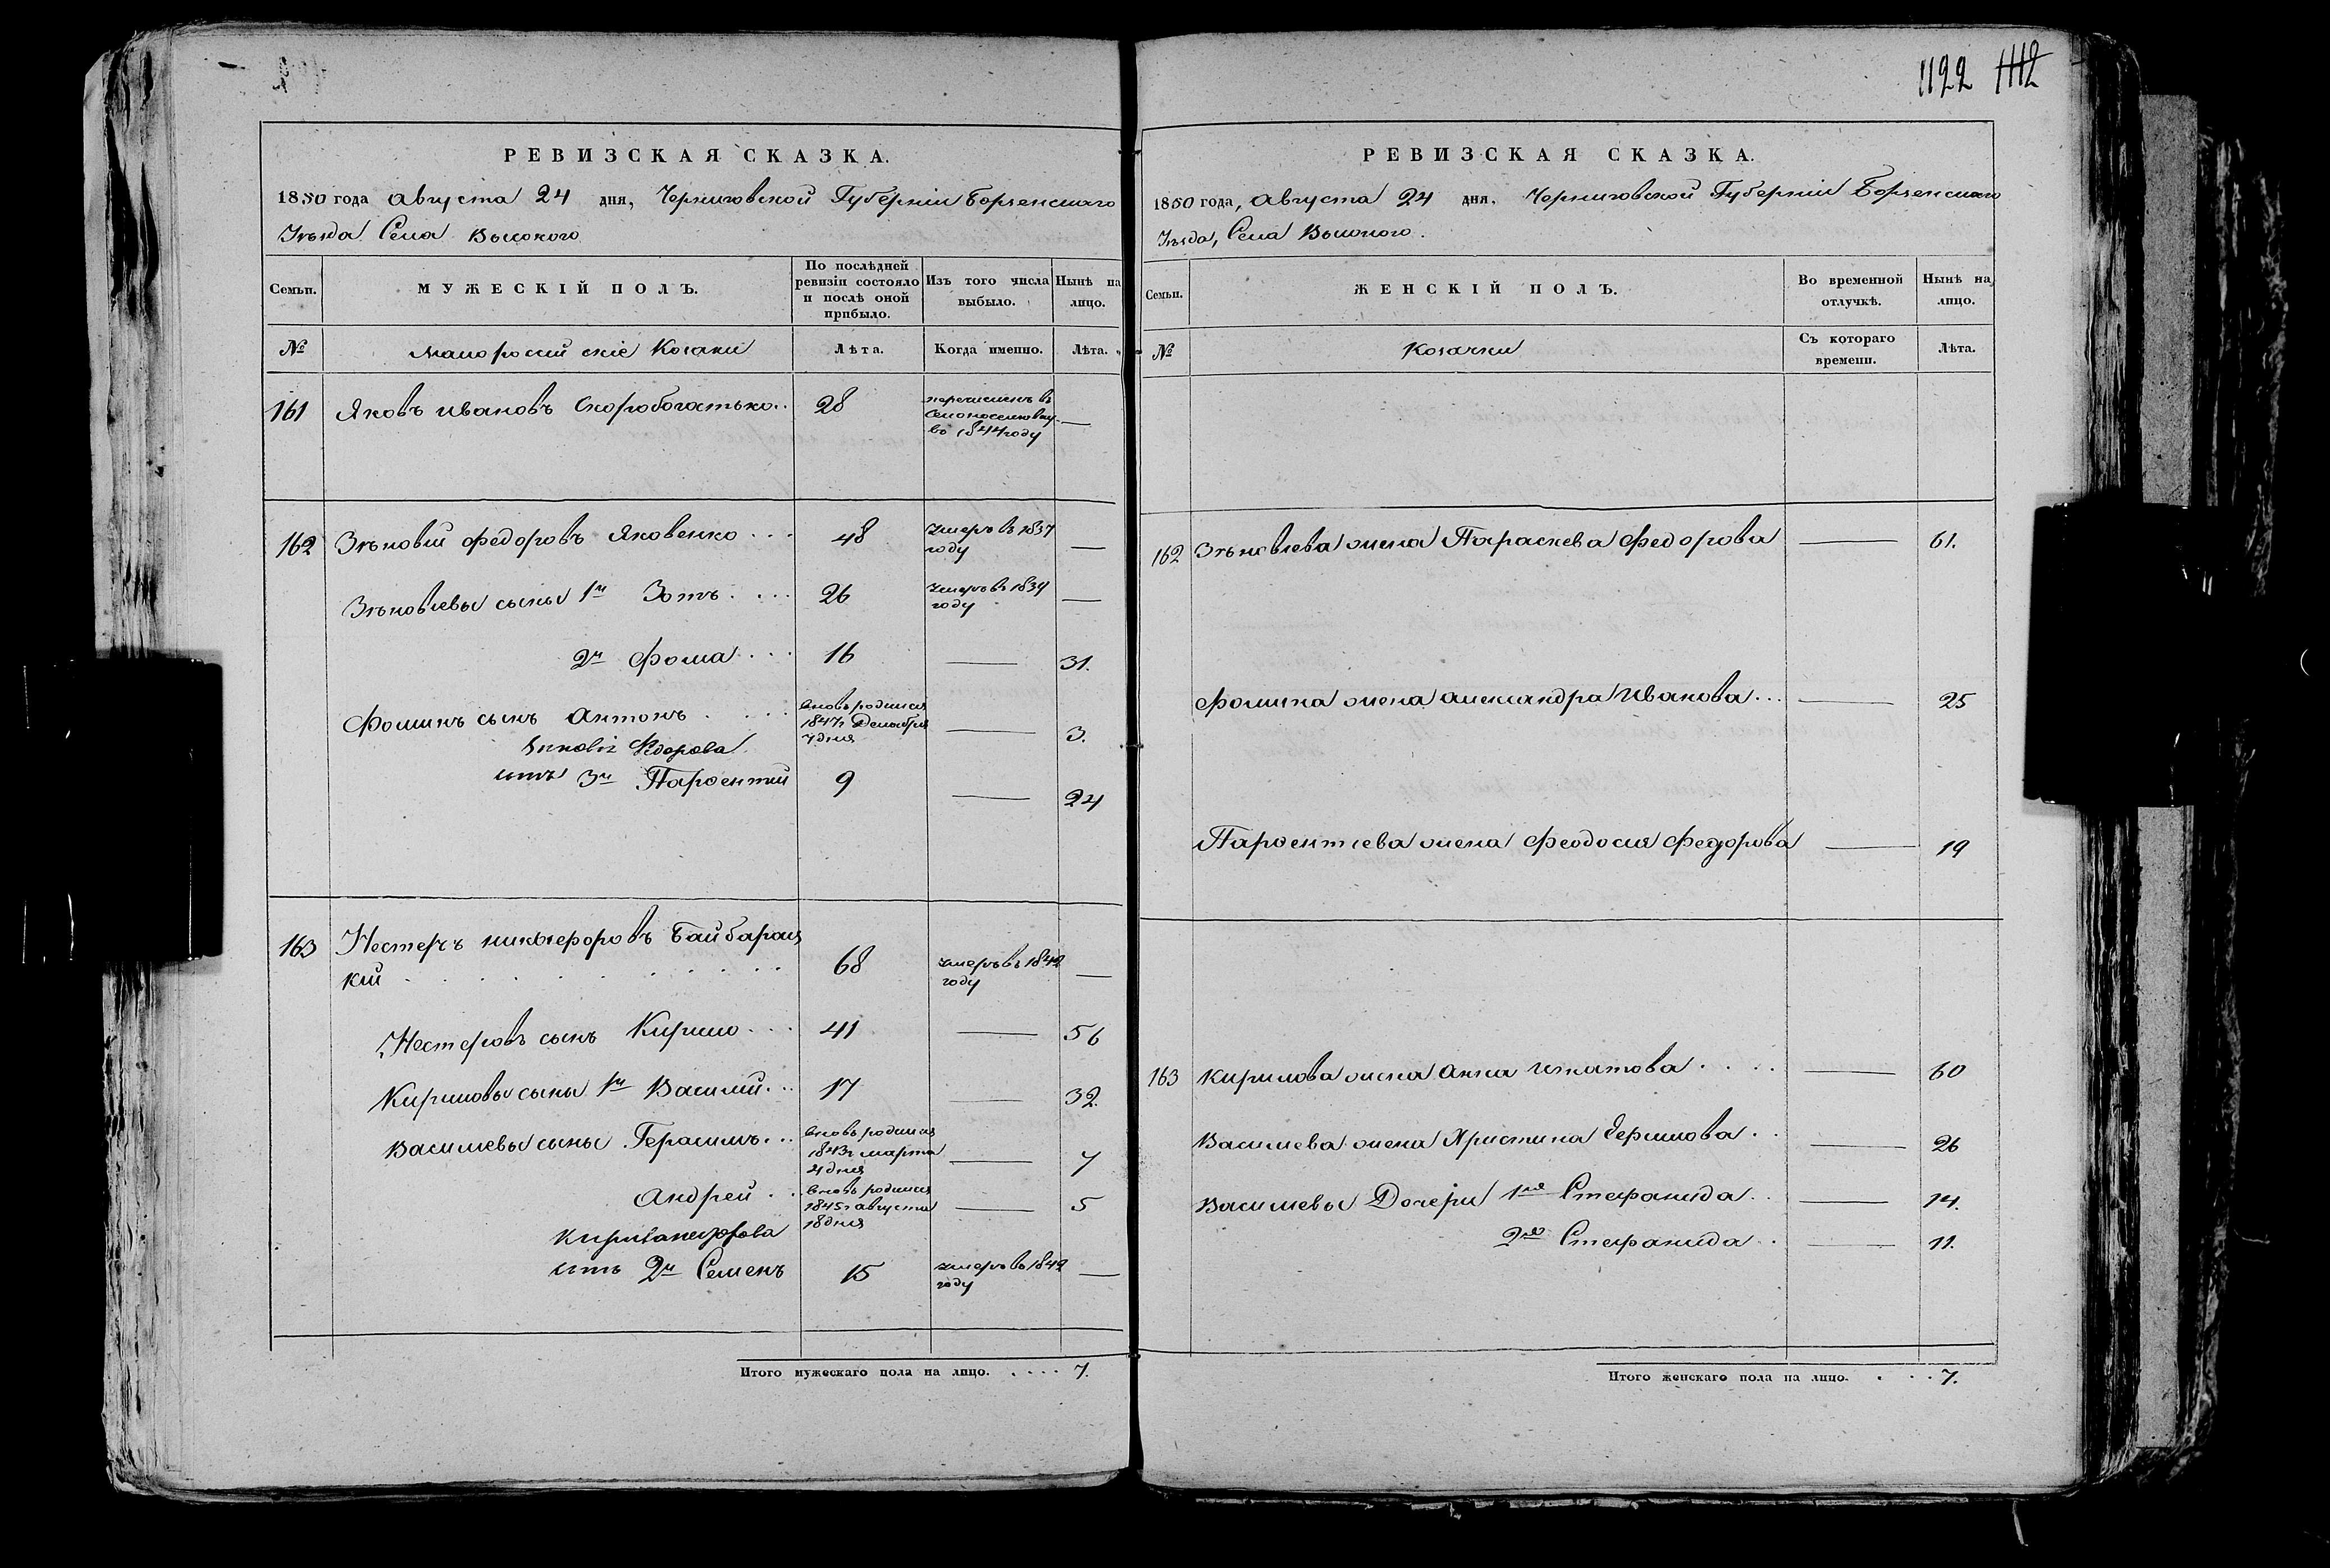 1122 1112
РЕВИЗСКАЯ СКАЗКА.
1850 года Августа 24 дня, Черниговской Губерніи Борзенскаго
Уѣзда Села Высокого
Семьи.
МУЖЕСКІЙ ПОЛЪ.
По послѣдней
ревизіи состояло
и послѣ оной
прибыло.
Изъ того числа
выбыло.
Нынѣ на
лицо.
№
Малороссійскіе Козаки
Лѣта.
Когда именно.
Лѣта.
161 Яковъ Ивановъ Скоробогатько.. 28
перечисленъ въ
въ 1844 году —
162 Зѣновій Федоровъ Яковенко ... 48 умеръ въ 1837
году —
Зѣновіевы сыны 1й Зотъ .... 26 умеръ въ 1839
году —
2й Фома ... 16 — 31.
Фоминъ сынъ Антонъ ....
вновь родился
1847г Декабря
7 дня — 3.
Зиновія Федорова
сынъ 3й Парѳентій 9 — 24
163 Нестеръ Никифоровъ Байбарацс
кій 68 умеръ въ 1842
году —
Нестеровъ сынъ Кирило ... 41 — 56
Кириловы сыны 1й Василій... 17 — 32.
Василіевы сыны Герасимъ...
вновь родился
1843г марта
4 дня — 7
Андрей ..
вновь родился
1845г августа
18 дня — 5
сынъ 2й Семенъ 15 умеръ въ 1842
году —
Итого мужескаго пола на лицо. .... 7.
РЕВИЗСКАЯ СКАЗКА.
1850 года, Августа 24 дня. Черниговской Губерніи Борзенскаго
Уѣзда, Села Высокого.
Семьи.
ЖЕНСКІЙ ПОЛЪ.
Во временной
отлучкѣ.
Нынѣ на
лицо.
№
Козачки
Съ котораго
времени.
Лѣта.
162 Зѣновіева жена Параскева Федорова — 61.
Фомина жена Александра Иванова... — 25
Парѳентіева жена Феодосія Федорова — 19
163 Кирилова жена Анна Игнатова .... — 60
Василіева жена Христина Герилова .. — 26
Василіевы Дочери 1я Стефанида .. — 14.
2я Стефанида . — 11.
Итого женскаго пола на лицо. .... 7.